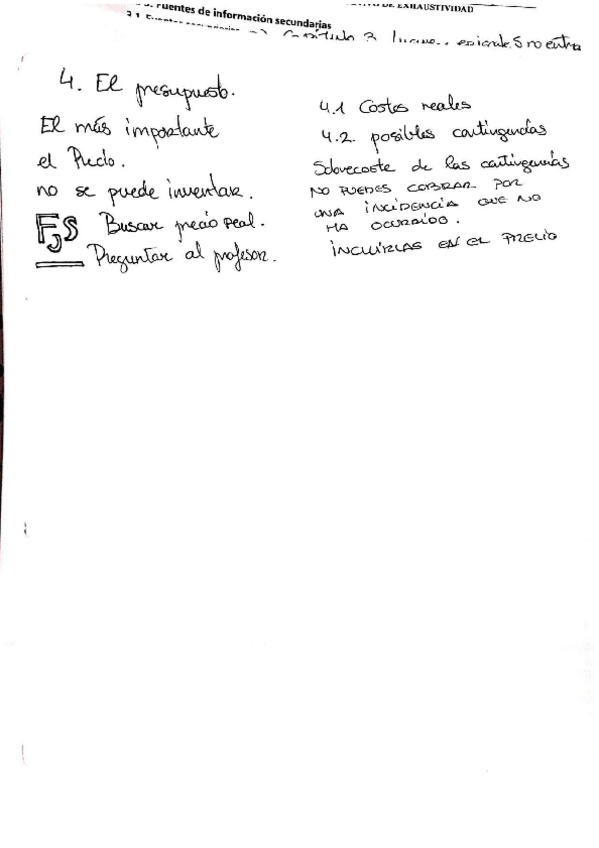 Fuentes de información secundarias
DE EXHAUSTIVIDAD
Capítulo 3
4. El presupuesto.
El más importante
el Precio.
no se puede inventar.
FJS Buscar precio real.
Preguntar al profesor.
4.1 Costes reales
4.2. posibles contingencias
Sobrecoste de las contingencias
NO PUEDES COBRAR POR
UNA INCIDENCIA QUE NO
HA OCURRIDO.
INCLUIRLAS EN EL PRECIO